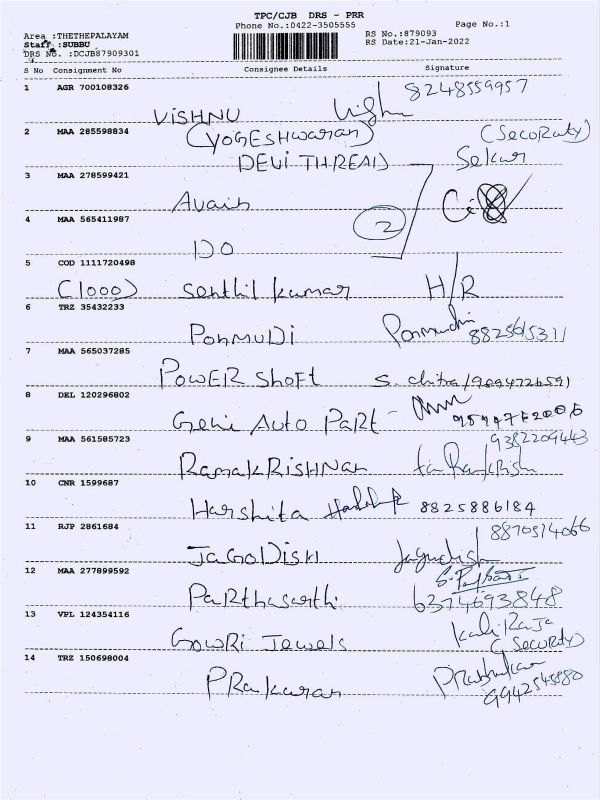 TPC/CJB DRS - PRR
Phone No.:0422-3505555
Page No.:1
Area :THETHEPALAYAM
RS No.:879093
Staff :SUBBU
RS Date:21-Jan-2022
DRS No. :DCJB87909301
S No Consignment No Consignee Details Signature
1 AGR 700108326
8248559957
VISHNU
2 MAA 285598834
(YOGESHWARAN) (Security)
DEVI THREADS Sekar
3 MAA 278599421
Avain
4 MAA 565411987
2
DO
5 COD 1111720498
(1000) Senthil kumar H/R
6 TRZ 35432233
PONMUDI Ponmudi
8825615311
7 MAA 565037285
POWER Shoft S. chitra/9894726591
8 DEL 120296802
Geni Auto Part -
9 MAA 561585723
9382209443
RAMAKRISHNAN
10 CNR 1599687
Harshita 8825886184
11 RJP 2861684
8870514066
JAGODISH Jagudish
12 MAA 277899592
Parthasarthi 6374693848
13 VPL 124354116
Kali Raja
GOWRI Jewels (Security)
14 TRZ 150698004
PRakaran Prabhakar
9942545880